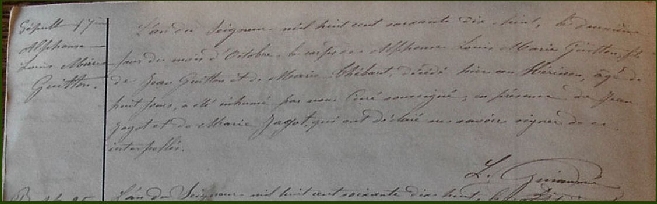 Sépult. 17
Alphonse
Louis Marie
Guitton.
L'an du Seigneur mil huit cent soixante dix huit, le deuxième
jour du mois d'Octobre, le corps de Alphonse Louis Marie Guitton, fils
de Jean Guitton et de Marie Thébaut, décédé hier au Hérisson, âgé de
huit jours, a été inhumé par nous Curé soussigné, en présence de Jean
Jagot et de Marie Jagot, qui ont déclaré ne savoir signer de ce
interpellés.
L'an du Seigneur mil huit cent soixante dix huit, le